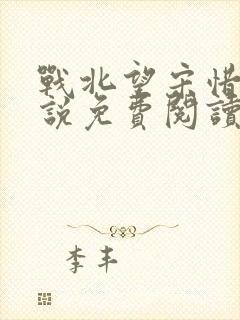 戰北望宋惜
說免費閱讀
李丰